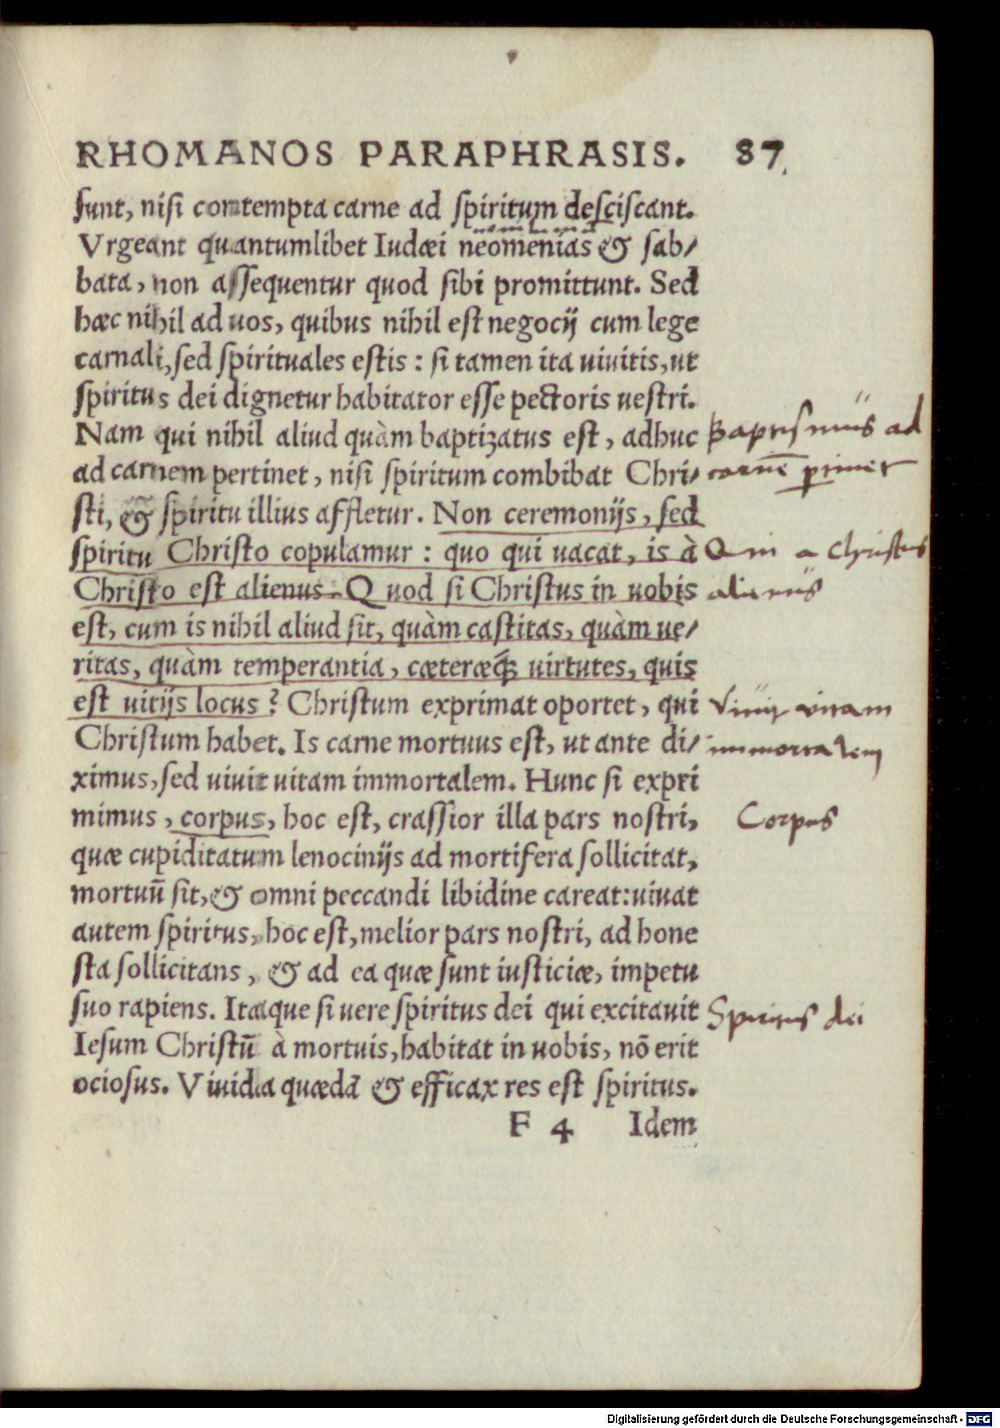 RHOMANOS PARAPHRASIS. 87
sunt, nisi contempta carne ad spiritum desciscant.
Vrgeant quantumlibet Iudæi neomenias & sab/
bata, non assequentur quod sibi promittunt. Sed
hæc nihil ad uos, quibus nihil est negocij cum lege
carnali, sed spirituales estis : si tamen ita uiuitis, ut
spiritus dei dignetur habitator esse pectoris uestri.
Nam qui nihil aliud quàm baptizatus est, adhuc
ad carnem pertinet, nisi spiritum combibat Chri/
sti, & spiritu illius affletur. Non ceremonijs, sed
spiritu Christo copulamur : quo qui uacat, is à
Christo est alienus. Quod si Christus in uobis
est, cum is nihil aliud sit, quàm castitas, quàm ue/
ritas, quàm temperantia, cæteræq; uirtutes, quis
est uitijs locus ? Christum exprimat oportet, qui
Christum habet. Is carne mortuus est, ut ante di/
ximus, sed uiuit uitam immortalem. Hunc si expri
mimus, corpus, hoc est, crassior illa pars nostri,
quæ cupiditatum lenocinijs ad mortifera sollicitat,
mortuū sit, & omni peccandi libidine careat: uiuat
autem spiritus, hoc est, melior pars nostri, ad hone
sta sollicitans, & ad ea quæ sunt iusticiæ, impetu
suo rapiens. Itaque si uere spiritus dei qui excitauit
Iesum Christū à mortuis, habitat in uobis, nō erit
ociosus. Viuida quædā & efficax res est spiritus.
F 4 Idem
Baptismus ad
carnē
a Christus
alienus
Vivit vitam
immortalem
Corpus
Spiritus dei
Digitalisierung gefördert durch die Deutsche Forschungsgemeinschaft - DFG